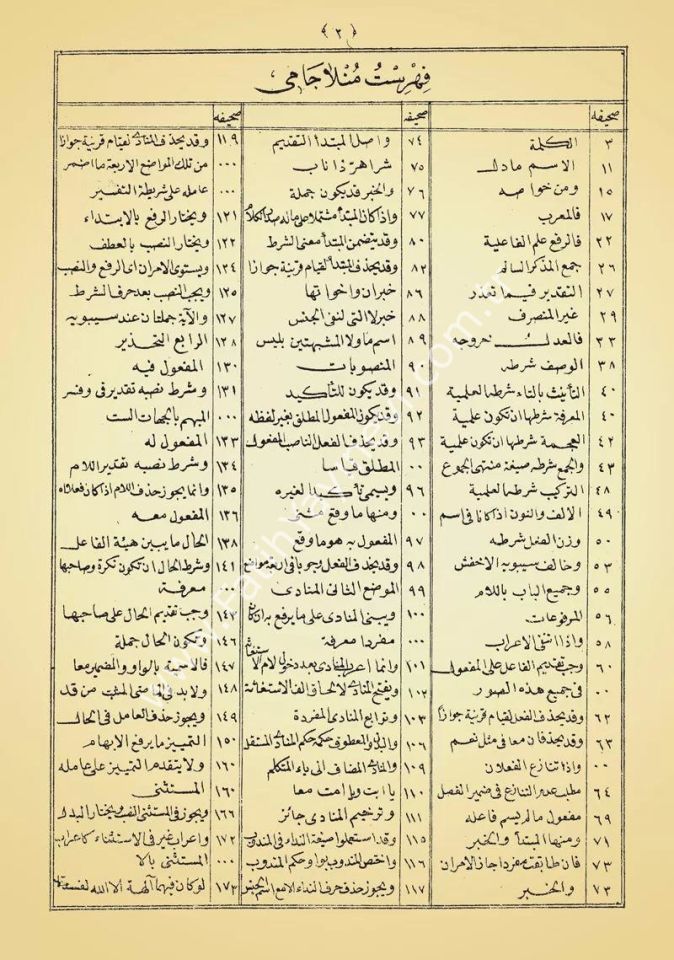 ﴿ ٢ ﴾
فهرست منلا جامى
صحيفه
٣ الكلمة
١١ الاسم مادل
١٥ ومن خواصه
١٧ فالمعرب
٢٢ فالرفع علم الفاعلية
٢٦ جمع المذكر السالم
٢٧ التقدير فيما تعذر
٢٩ غير المنصرف
٣٣ فالعدل خروجه
٣٨ الوصف شرطه
٤٠ التأنيث بالتاء شرطه العلمية
٤٠ المعرفة شرطها ان تكون علمية
٤٢ العجمة شرطها ان تكون علمية
٤٣ والجمع شرطه صيغة منتهى الجموع
٤٨ التركيب شرطه العلمية
٤٩ الالف والنون اذا كانا فى اسم
٥٠ وزن الفعل شرطه
٥٣ وخالف سيبويه الاخفش
٥٥ وجميع الباب باللام
٥٦ المرفوعات
٥٨ واذا انتفى الاعراب
٦٠ وجب تقديم الفاعل على المفعول
٠٠ فى جميع هذه الصور
٦٢ وقد يحذف الفعل لقيام قرينة جوازا
٦٣ وقد يحذفان معا فى مثل نعم
٠٠ واذا تنازع الفعلان
٦٤ مطلب عدم التنازع فى ضمير الفصل
٦٩ مفعول ما لم يسم فاعله
٧١ ومنها المبتدأ والخبر
٧٣ فان طابقت مفردا جاز الامران
٧٣ والخبر
صحيفه
٧٤ واصل المبتدأ التقديم
٧٥ شر اهر ذا ناب
٧٦ والخبر قد يكون جملة
٧٧ واذا كان المبتدأ مشتملا على ماله صدر الكلام
٨٠ وقد يتضمن المبتدأ معنى الشرط
٨٢ وقد يحذف المبتدأ لقيام قرينة جوازا
٨٦ خبر ان واخواتها
٨٨ خبر لا التى لنفى الجنس
٨٩ اسم ما ولا المشبهتين بليس
٩٠ المنصوبات
٩١ وقد يكون للتأكيد
٩٢ وقد يكون المفعول المطلق بغير لفظه
٩٣ وقد يحذف الفعل الناصب المفعول
٠٠ المطلق قياسا
٩٦ ويسمى تأكيدا لغيره
٠٠ ومنها ما وقع مثنى
٩٧ المفعول به هو ما وقع
٩٨ وقد يحذف الفعل وجوبا فى اربعة مواضع
٩٩ الموضع الثانى المنادى
١٠٠ ويبنى المنادى على ما يرفع به اذا كان
٠٠٠ مفردا معرفة
١٠١ وانما اعرب المنادى بعد دخول اللام الاستغاثة
١٠٢ ويفتح المنادى لالحاق الف الاستغاثة
١٠٣ وتوابع المنادى المفردة
١٠٦ والبدل والمعطوف حكمه حكم المنادى المستقل
١٠٩ والمنادى المضاف الى ياء المتكلم
١١٠ يا ابت ويا امت معا
١١١ وترخيم المنادى جائز
١١٥ وقد استعملوا صيغة النداء فى المندوب
١١٦ واختص المندوب بوا وحكم المندوب
١١٧ ويجوز حذف حرف النداء الا مع اسم الجنس
صحيفه
١١٩ وقد يحذف المنادى لقيام قرينة جوازا
٠٠٠ من تلك المواضع الاربعة ما اضمر
٠٠٠ عامله على شريطة التفسير
١٢١ ويختار الرفع بالابتداء
١٢٢ ويختار النصب بالعطف
١٢٤ ويستوى الامران اى الرفع والنصب
١٢٥ ويجب النصب بعد حرف الشرط
١٢٧ والآية جملتان عند سيبويه
١٢٨ الرابع التحذير
١٣٠ المفعول فيه
١٣١ وشرط نصبه تقدير فى وفسر
٠٠٠ المبهم بالجهات الست
١٣٣ المفعول له
١٣٤ وشرط نصبه تقدير اللام
١٣٥ وانما يجوز حذف اللام اذا كان فعلا
١٣٦ المفعول معه
١٣٨ الحال ما يبين هيئة الفاعل
١٤١ وشرط الحال ان تكون نكرة وصاحبها
٠٠٠ معرفة
١٤٧ وجب تقديم الحال على صاحبها
١٤٦ وتكون الحال جملة
١٤٧ فالاسمية بالواو والضمير معا
١٤٨ ولا بد فى الماضى المثبت من قد
١٤٩ ويجوز حذف العامل فى الحال
١٥٠ التمييز ما يرفع الابهام
١٦٠ ولا يتقدم التمييز على عامله
١٦٠ المستثنى
١٦٦ ويجوز فى المستثنى النصب ويختار البدل
١٧٢ واعراب غير فى الاستثناء كاعراب
٠٠٠ المستثنى بالا
١٧٣ لو كان فيهما آلهة الا الله لفسدتا
www.fatihyayinevi.com.tr